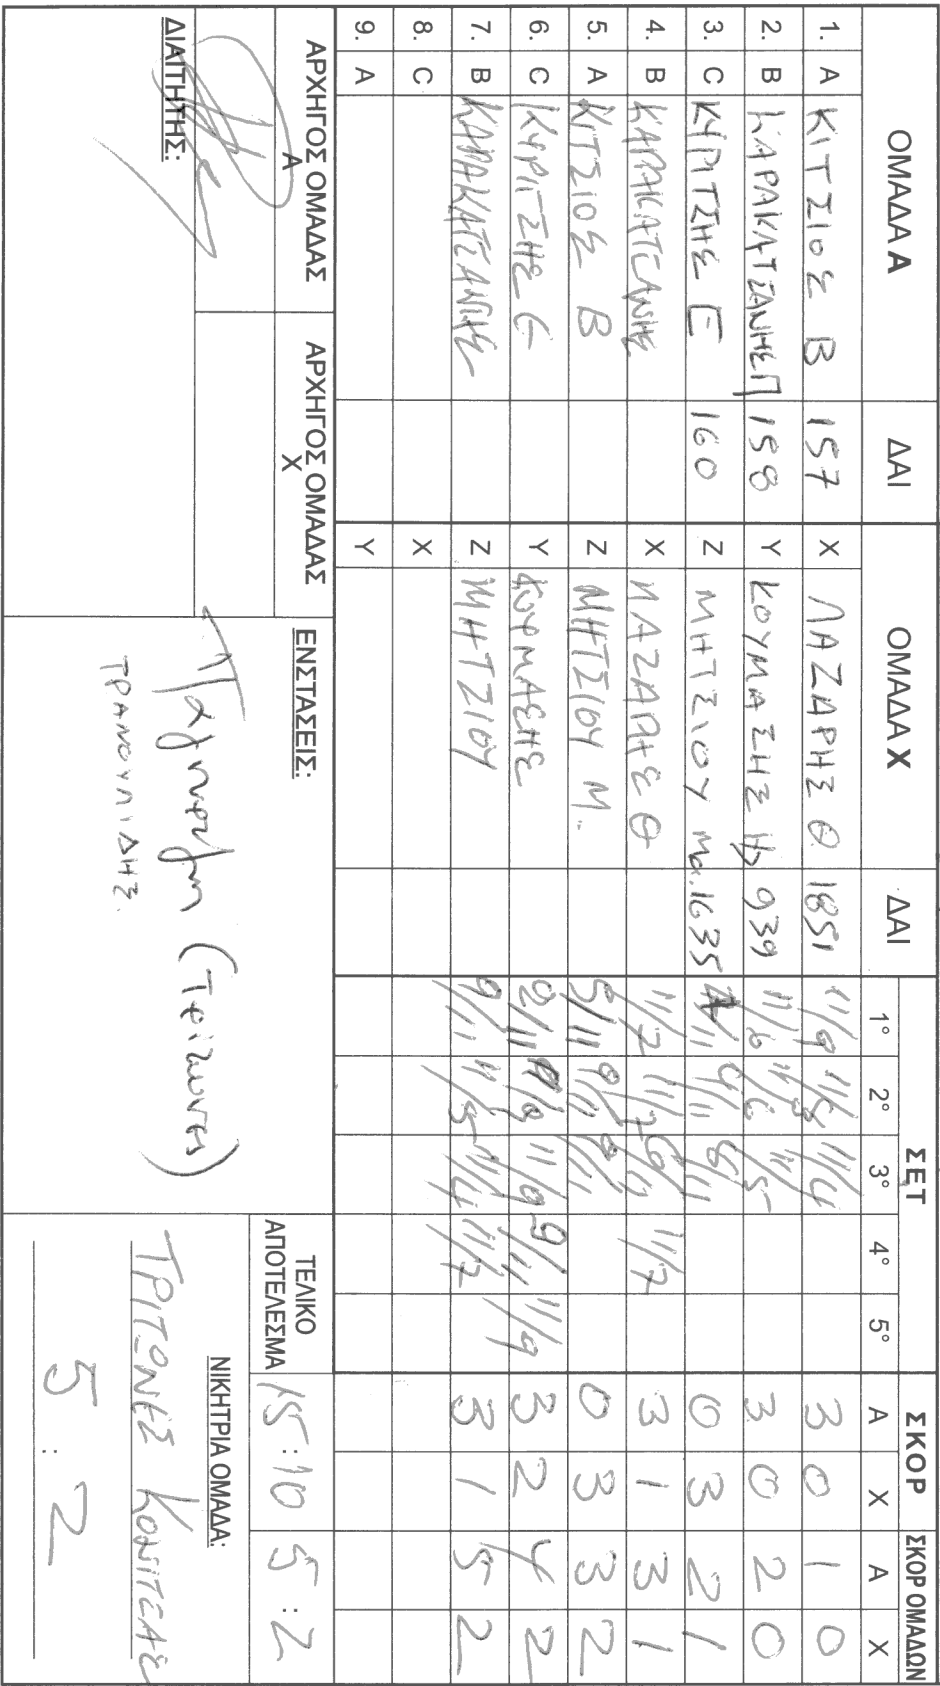 ΟΜΑΔΑ Α ΔΑΙ ΟΜΑΔΑ Χ ΔΑΙ ΣΕΤ ΣΚΟΡ ΣΚΟΡ ΟΜΑΔΩΝ
1° 2° 3° 4° 5° Α Χ Α Χ
1. A ΚΙΤΣΙΟΣ Β 157 X ΛΑΖΑΡΗΣ Θ 1851 11/9 11/8 11/4 3 0 1 0
2. B ΚΑΡΑΚΑΤΣΑΝΗΣ Π 158 Y ΚΟΥΜΑΣΗΣ 939 11/6 11/5 3 0 2 0
3. C ΚΥΡΙΤΣΗΣ Ε 160 Z ΜΗΤΣΙΟΥ Μα. 1635 8/11 0 3 2 1
4. B ΚΑΡΑΚΑΤΣΑΝΗΣ X ΛΑΖΑΡΗΣ Θ 11/7 11/7 11/7 3 1 3 1
5. A ΚΙΤΣΙΟΣ Β Z ΜΗΤΣΙΟΥ Μ. 5/11 9/11 0 3 3 2
6. C ΚΥΡΙΤΣΗΣ Ε Y ΚΟΥΜΑΣΗΣ 11/9 9/11 11/9 3 2 4 2
7. B ΚΑΡΑΚΑΤΣΑΝΗΣ Z ΜΗΤΣΙΟΥ 9/11 11/5 11/4 11/7 3 1 5 2
8. C X
9. A Y
ΑΡΧΗΓΟΣ ΟΜΑΔΑΣ Α ΑΡΧΗΓΟΣ ΟΜΑΔΑΣ Χ
ΔΙΑΙΤΗΤΗΣ:
ΕΝΣΤΑΣΕΙΣ:
ΤΡΑΝΟΥΛΙΔΗΣ
ΤΕΛΙΚΟ ΑΠΟΤΕΛΕΣΜΑ 15:10 5:2
ΝΙΚΗΤΡΙΑ ΟΜΑΔΑ:
ΤΡΙΤΩΝΕΣ ΚΟΝΙΤΣΑΣ
5 : 2